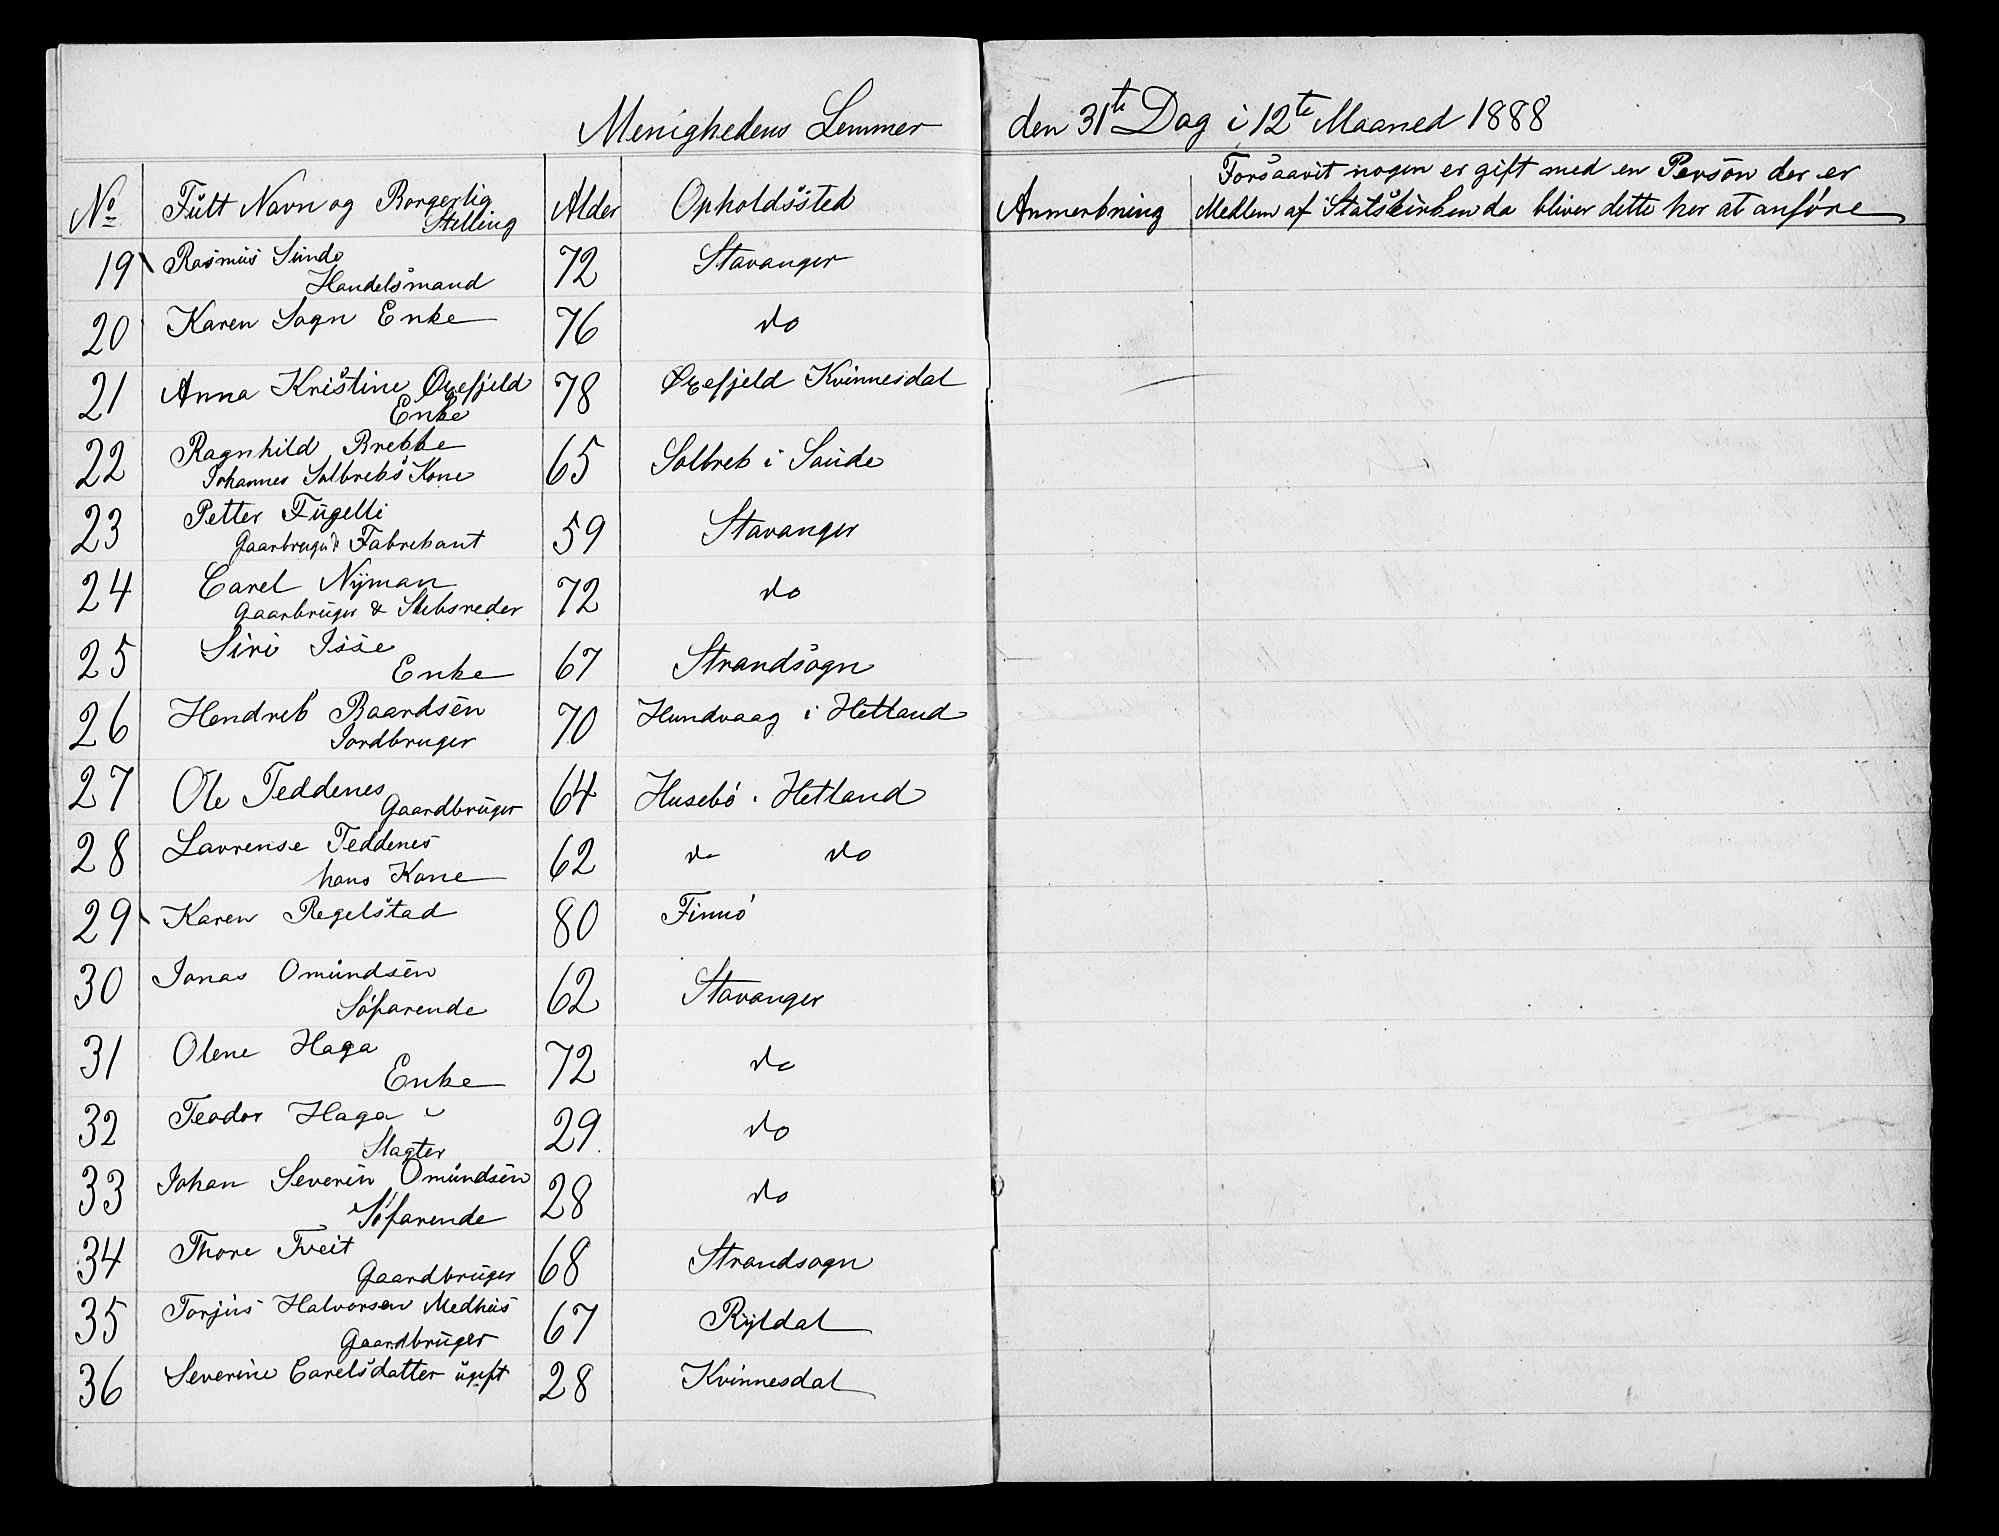 Menighedens Lemmer den 31te Dag i 12te Maaned 1888
No Fult Navn og Borgerlig Stilling Alder Opholdssted Anmerkning Forsaavit nogen er gift med en Person der er
Medlem af Statskirken da bliver dette her at anføre
19 Rasmus Sunde 72 Stavanger
Handelsmand
20 Karen Sogn Enke 76 do
21 Anna Kristine Øxefjeld 78 Øxefjeld Kvinnesdal
Enke
22 Ragnhild Brekke 65 Solbrek i Saude
Johannes Solbreks Kone
23 Petter Fugelli 59 Stavanger
Gaarbruger & Fabrekant
24 Carel Nyman 72 do
Gaarbruger & Skibsreder
25 Siri Isse 67 Strandsogn
Enke
26 Hendrek Baardsen 70 Hundvaag i Hetland
Jordbruger
27 Ole Teddenes 64 Husebø i Hetland
Gaardbruger
28 Lavrense Teddenes 62 do do
hans Kone
29 Karen Regelstad 80 Finnø
30 Jonas Omundsen 62 Stavanger
Søfarende
31 Olene Haga 72 do
Enke
32 Teodor Haga 29 do
Slagter
33 Johan Severin Omundsen 28 do
Søfarende
34 Thore Tveit 68 Strandsogn
Gaardbruger
35 Torjus Halvorsen Medhus 67 Ryldal
Gaardbruger
36 Severine Carelsdatter ugift 28 Kvinnesdal